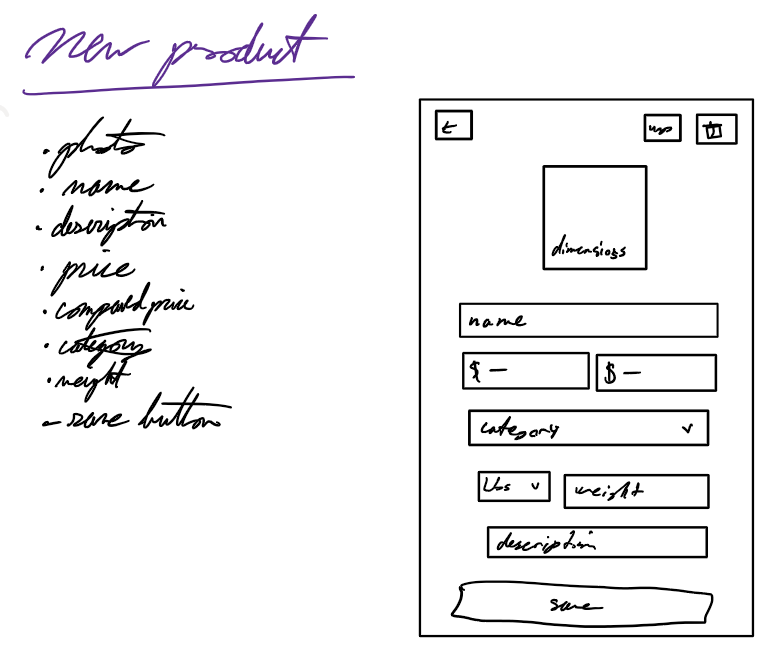 new product
• photo
• name
• description
• price
• compared price
• category
• weight
- save button
dimensions
name
$ - $ -
category
Lbs weight
description
save